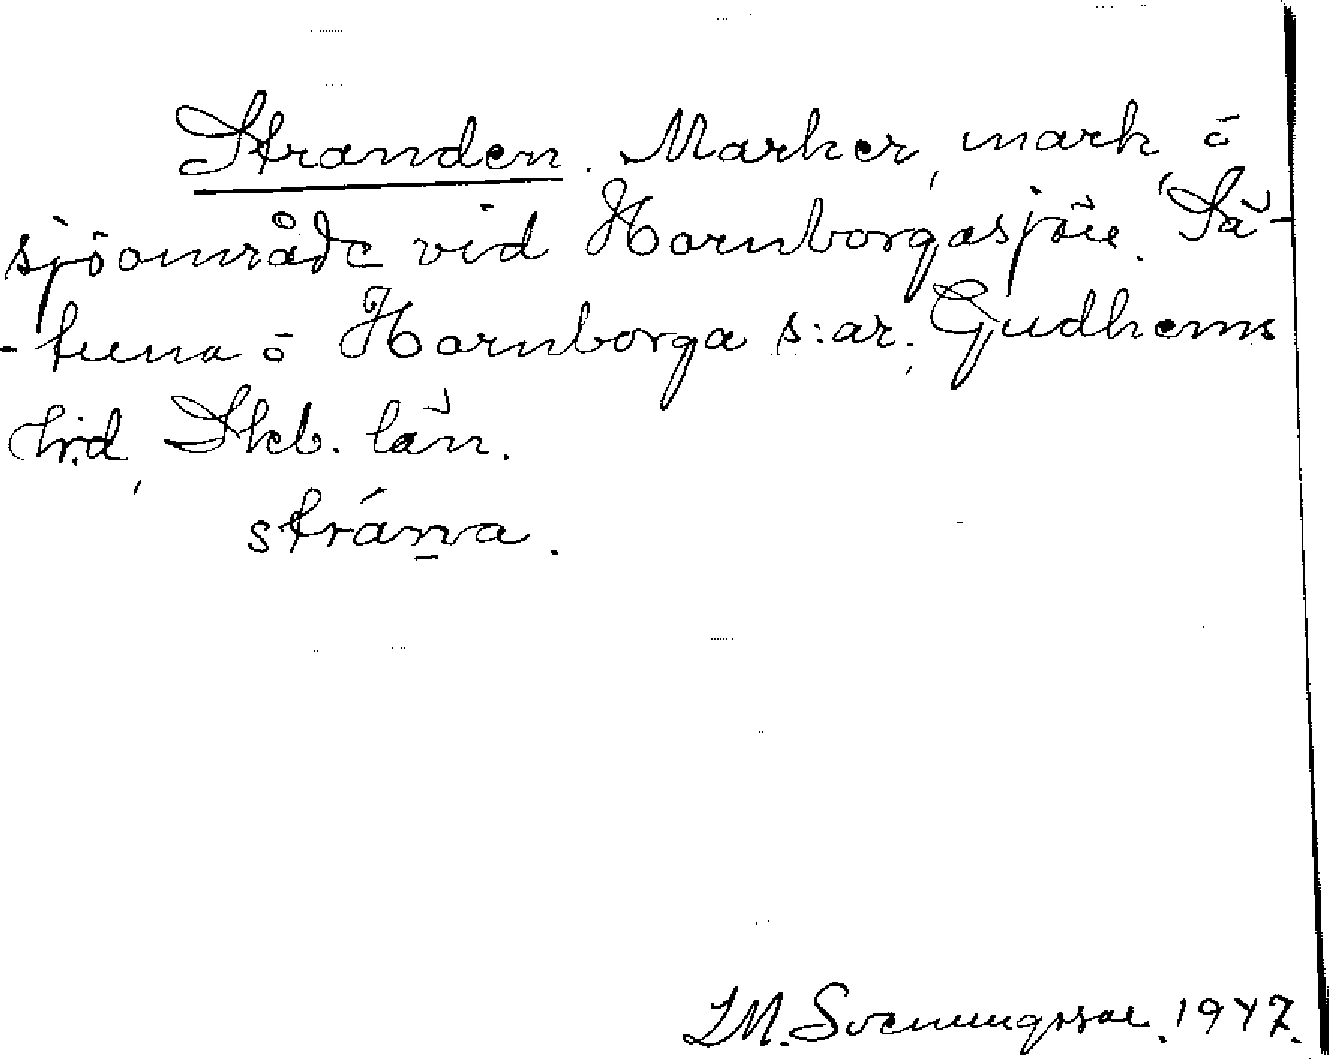 Stranden. Marker, mark ō
sjöområde vid Hornborgasjön. Sä-
-tuna ō Hornborga s:ar, Gudhems
hd, Skb. län.
strána.
I.M. Svenungsson. 1947.